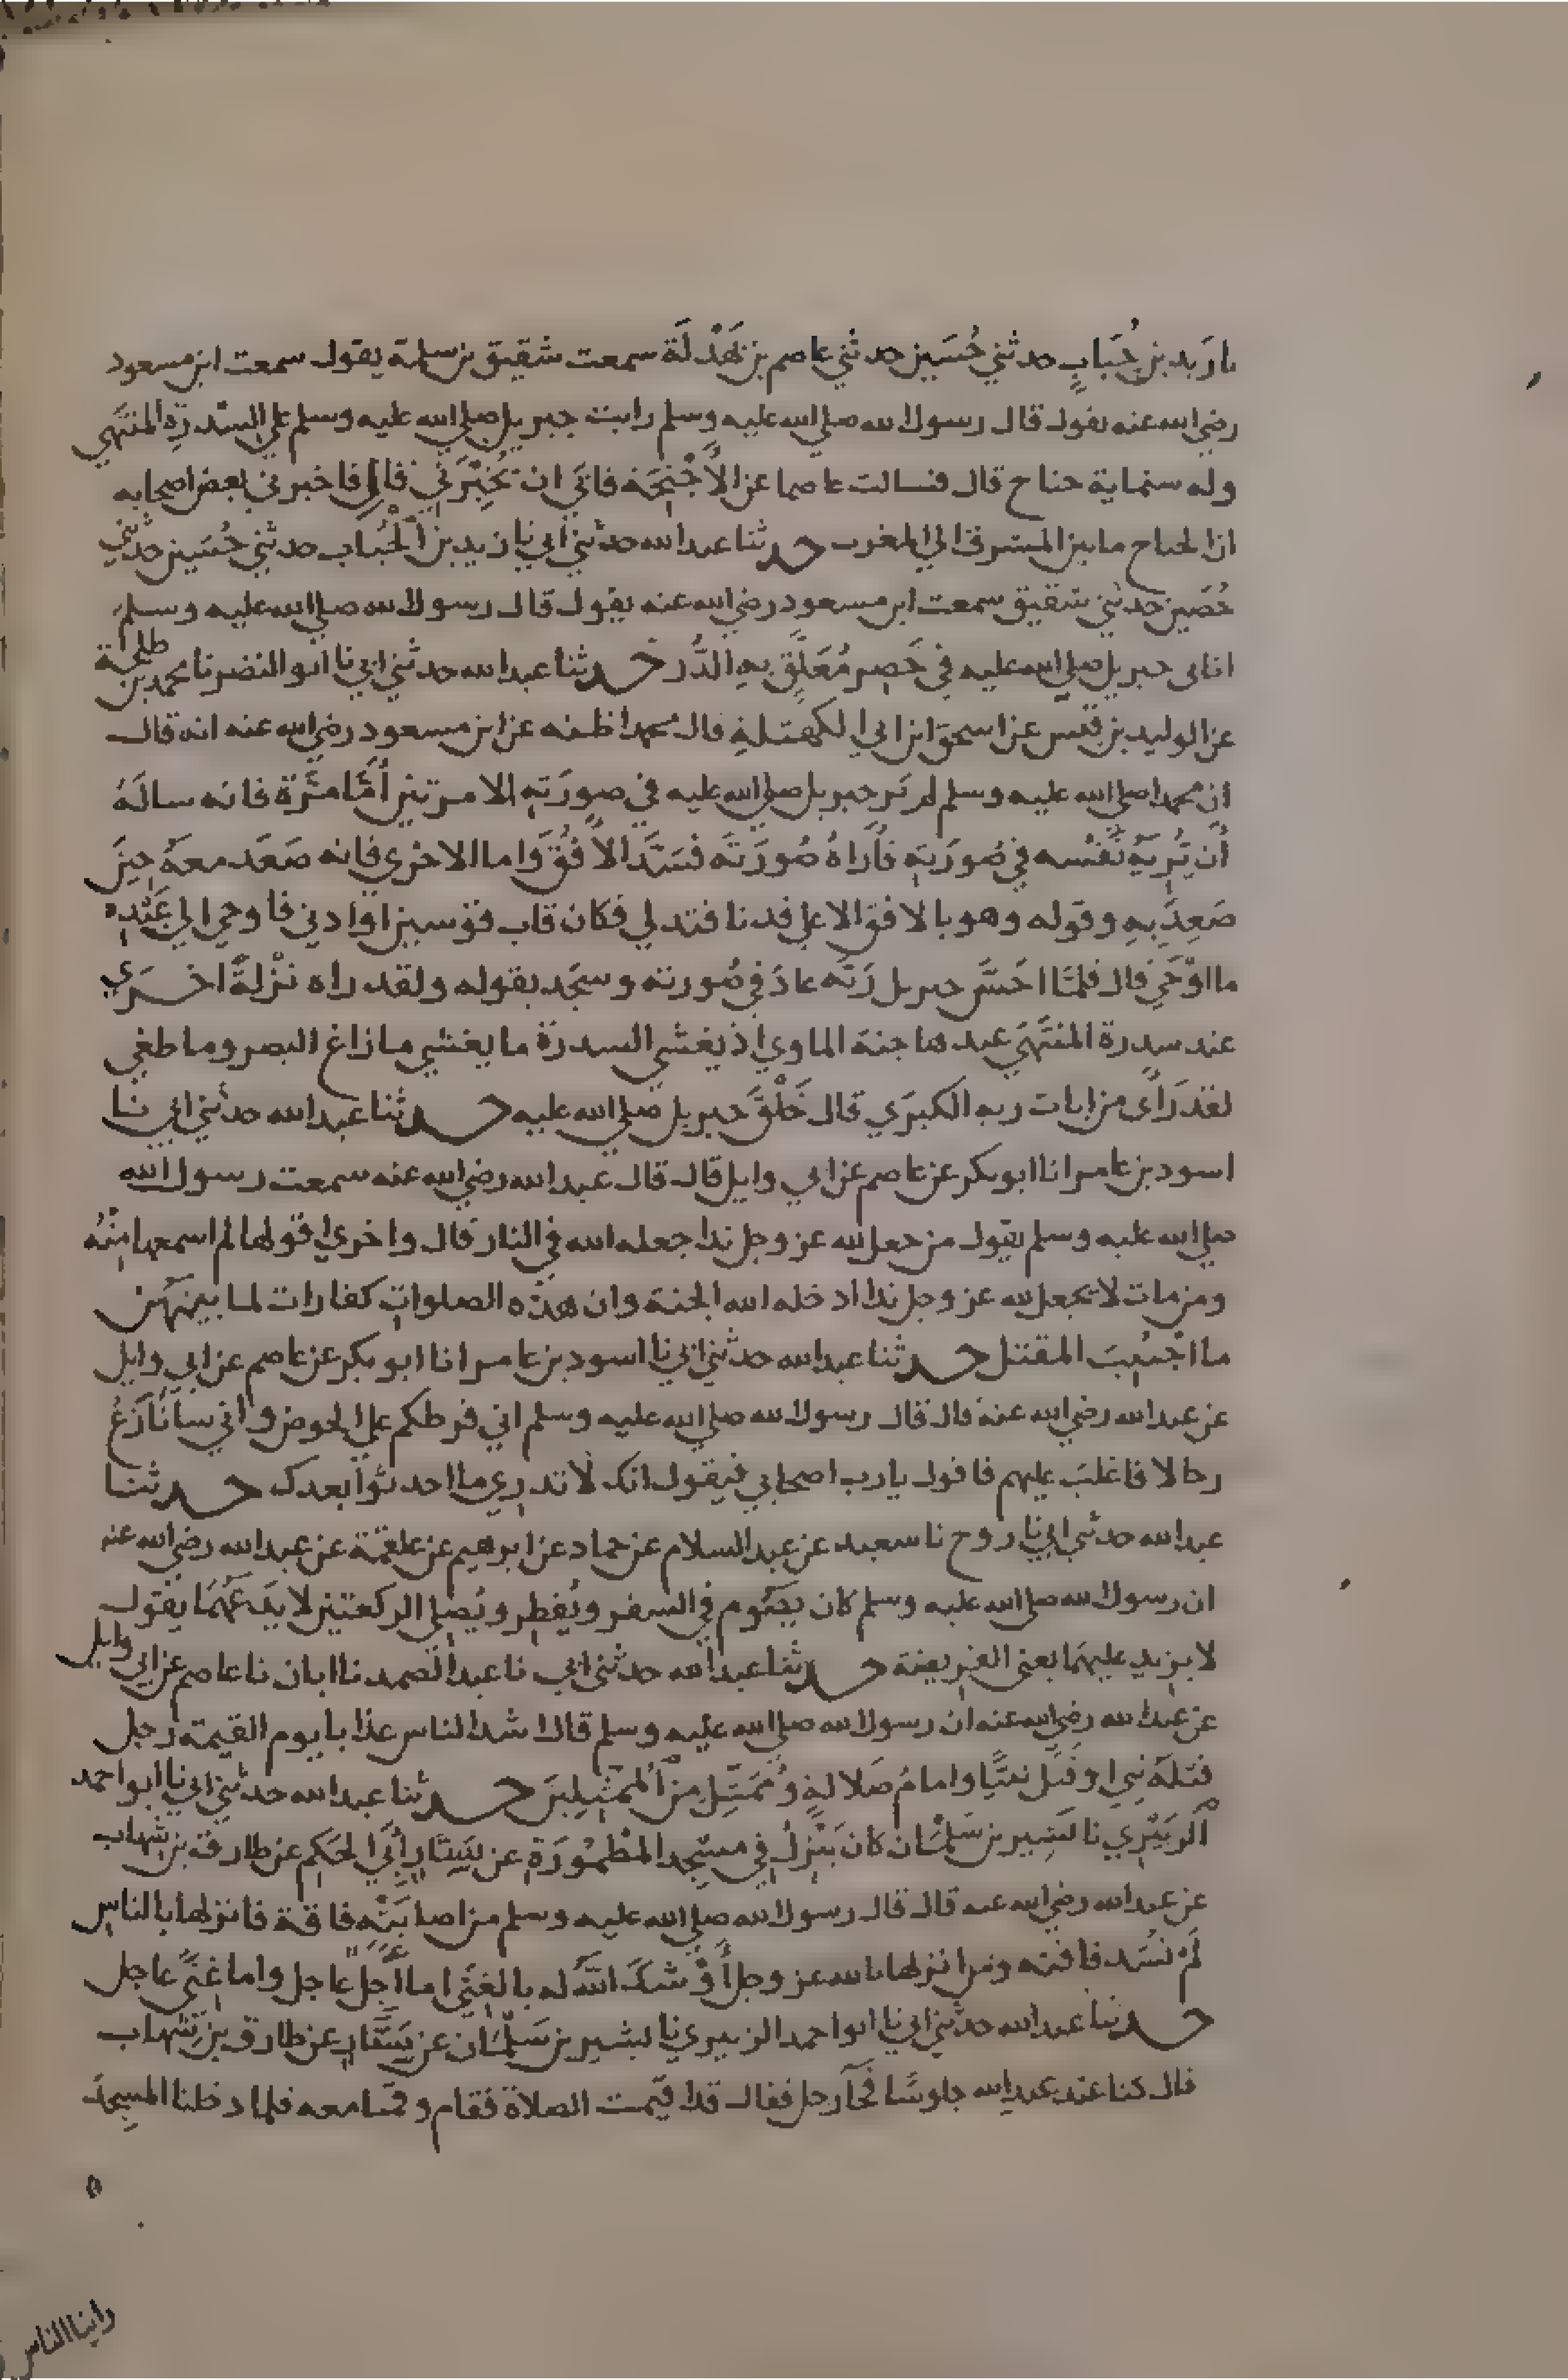 نا زيد بن حُبَابٍ حدثني حُسَين حدثني عاصم بن بَهْدَلَة سمعت شقيق بن سلمة يقول سمعت ابن مسعود
رضي الله عنه يقول قال رسول الله صلي الله عليه وسلم رايت جبريل صلي الله عليه وسلم علي السِّدرةِ المنتَهَي
وله ستماية جناح قال فسالت عاصما عن الاَجْنِحَة فابَي ان يُخبِرَني قال فاخبرني بعض اصحابه
ان الجناح ما بين المشرق الي المغرب حدثنا عبد الله حدثني ابي نا زيد بن الحُبَاب حدثني حُسَين حدثني
حُصَين حدثني شقيق سمعت ابن مسعود رضي الله عنه يقول قال رسول الله صلي الله عليه وسلم
اتاني جبريل صلي الله عليه في خَضِرٍ مُعَلَّقٍ بهِ الدُّر حدثنا عبد الله حدثني ابي نا ابو النضر نا محمد بن طلحة
عن الوليد بن قيس عن اسحق ابن ابي الكهتلةِ قال محمد اظنه عن ابن مسعود رضي الله عنه انه قال
ان محمدا صلي الله عليه وسلم لم يَر جبريل صلي الله عليه في صورَتهِ الا مرتين اَمَّا مَرَّة فانه سالَهُ
أن يُرِيَهُ نَفْسه في صُورَتِهِ فاَراهُ صُورَتَه فسَدَّ الاُفُقَ واما الاخري فانه صَعَد معهُ حِينَ
صَعِدَ بهِ وقوله وهو بالافق الاعلي ثم دنا فتدلي فكان قاب قوسين او ادني فاوحي الي عَبْدِه
ما اوْحَي قال فلمَّا احَسَّ جبريل رَبَّه عادَ في صُورته وسَجَد بقوله ولقد راه نزْلةً اخرَي
عند سدرة المنتَهَي عندها جنة الماوي اذ يغشي السدرة ما يغشي ما زاغ البصر وما طغي
لقد رَاَى من ايات ربه الكبرَي قال خَلْقَ جبريل صلي الله عليه حدثنا عبد الله حدثني ابي نا
اسود بن عامر انا ابو بكر عن عاصم عن ابي وايل قال قال عبد الله رضي الله عنه سمعت رسول الله
صلي الله عليه وسلم يقول من جعل لله عز وجل ندا جعله الله في النار قال واخري اقولها لم اسمعها مِنْهُ
ومن مات لا يجعل لله عز وجل ندا ادخله الله الجنة وان هذه الصلوات كفارات لما بينهُن
ما اجتُنِبَ المقتل حدثنا عبد الله حدثني ابي نا اسود بن عامر انا ابو بكر عن عاصم عن ابي وايل
عن عبد الله رضي الله عنه قال قال رسول الله صلي الله عليه وسلم اني فرطكم علي الحوض واني ساُنَازَعُ
رجالا فاغلبَ عليهم فاقول يا رب اصحابي فيقول انك لا تدري ما احدثوا بعدك حدثنا
عبد الله حدثني ابي نا روح نا سعيد عن عبد السلام عن حماد عن ابرهيم عن علقمة عن عبد الله رضي الله عنه
ان رسول الله صلي الله عليه وسلم كان يصُوم في السفر ويُفطِر ويُصلِي الركعتين لا يدَعهُمَا يقول
لا يزيد عليهمَا يعني الفريضة حدثنا عبد الله حدثني ابي نا عبد الصمد نا ابان نا عاصم عن ابي وايل
عن عبد الله رضي الله عنه ان رسول الله صلي الله عليه وسلم قال اشد الناس عذابا يوم القيمة رجل
قتلَهُ نبي او قتَل نبيًّا وامامُ ضلالةٍ ومُمَثِّلٍ مِنَ المُمَثِّلِينَ حدثنا عبد الله حدثني ابي نا ابو احمد
الزبَيْرِي نا بَشِير بن سَلْمَان كان يَنْزِلُ في مسْجِد المطْمُورَةِ عن سَيَّارٍ اَبِي الحكَم عن طارق بن شهاب
عن عبد الله رضي الله عنه قال قال رسول الله صلي الله عليه وسلم من اصابَتْه فاقة فانزلها بالناسِ
لَمْ تسَد فاقته ومن انزلها بالله عز وجل اَوْشكَ اللهُ له بالغِنَي اما اَجَلٌ عاجل واما غِنًي عاجل
حدثنا عبد الله حدثني ابي نا ابو احمد الزبيري نا بشير بن سَلْمَان عن سَيَّارٍ عن طارق بن شهاب
قال كنا عند عبد الله جلوسًا فجآ رجل فقال قد اقيمت الصلاة فقام وقمنا معه فلما دخلنا المسجدَ
راينا الناس